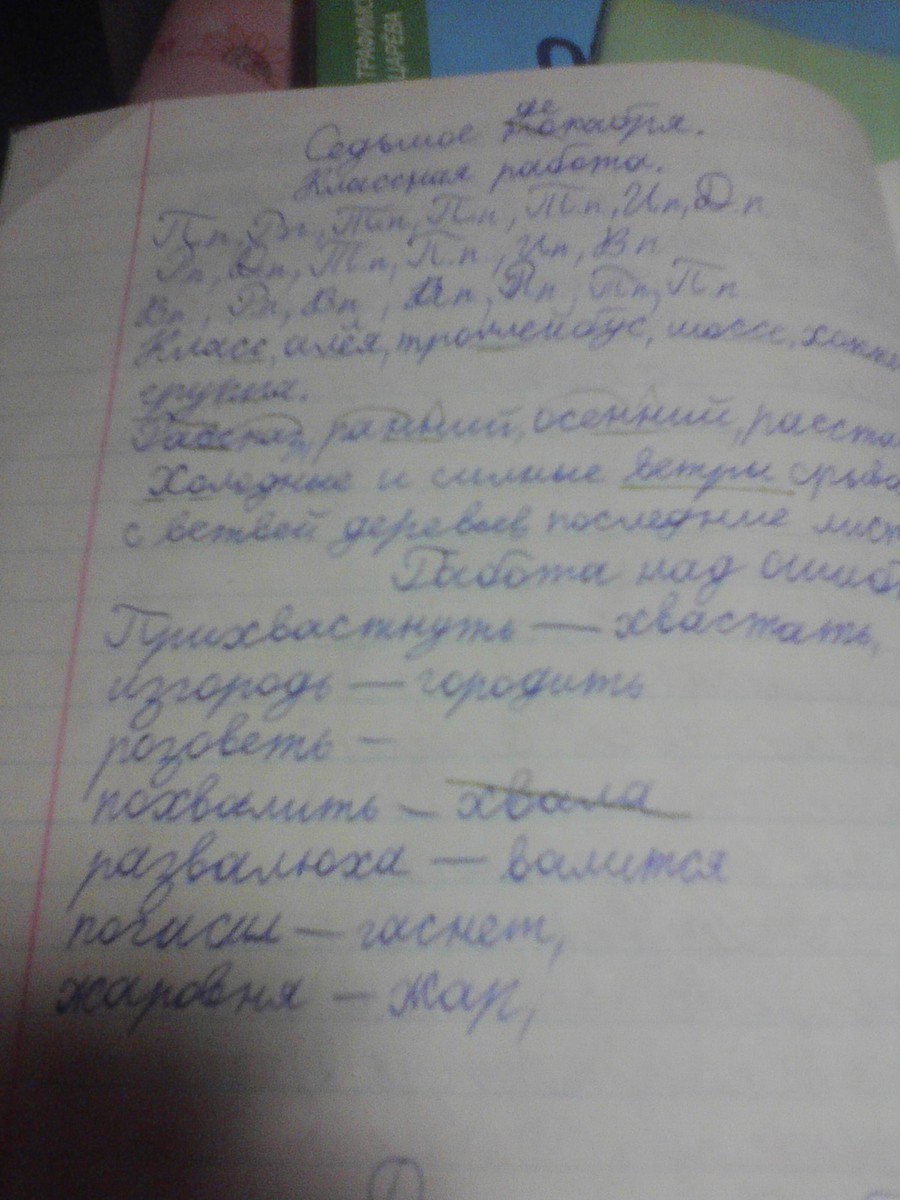 ТРАФИМО
ЦАРЕВА
Седьмое декабря.
Классная работа.
П.п, Рп, Т.п, П.п, Т.п, И.п, Д.п
Рп, Д.п, Т.п, П.п, И.п, В.п
В.п, Рп, В.п, И.п, Р.п, Т.п, П.п
Класс, алея, троллейбус, шоссе, хокке
группа.
Рассказ, ранний, осенний, расста
Холодные и сильные ветры срыва
с ветвей деревьев последние лист
Работа над ошиб
Прихвастнуть — хвастать,
изгородь — городить
розоветь —
похвалить — хвала
развалюха — валится
погасил — гаснет,
жаровня — жар,